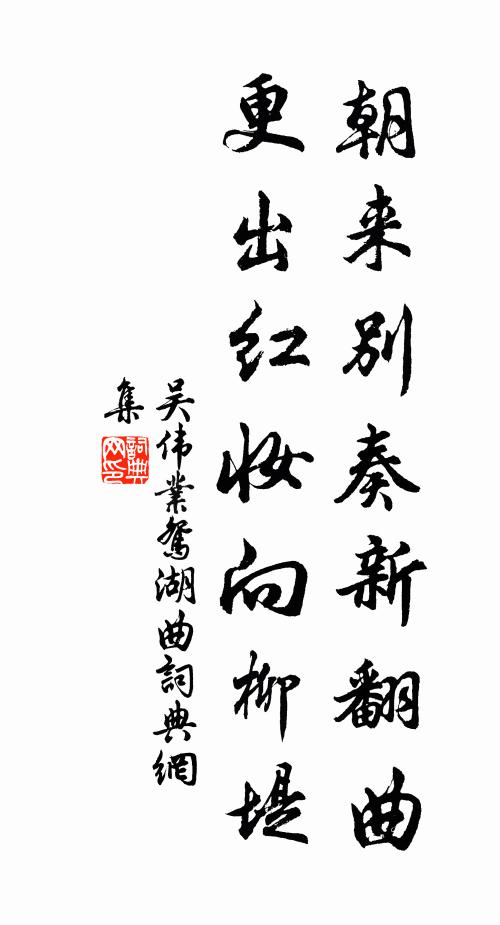 朝来别奏新翻曲
更出红妆向柳堤
吴伟業鴛湖曲詞典網
集
詞典网印